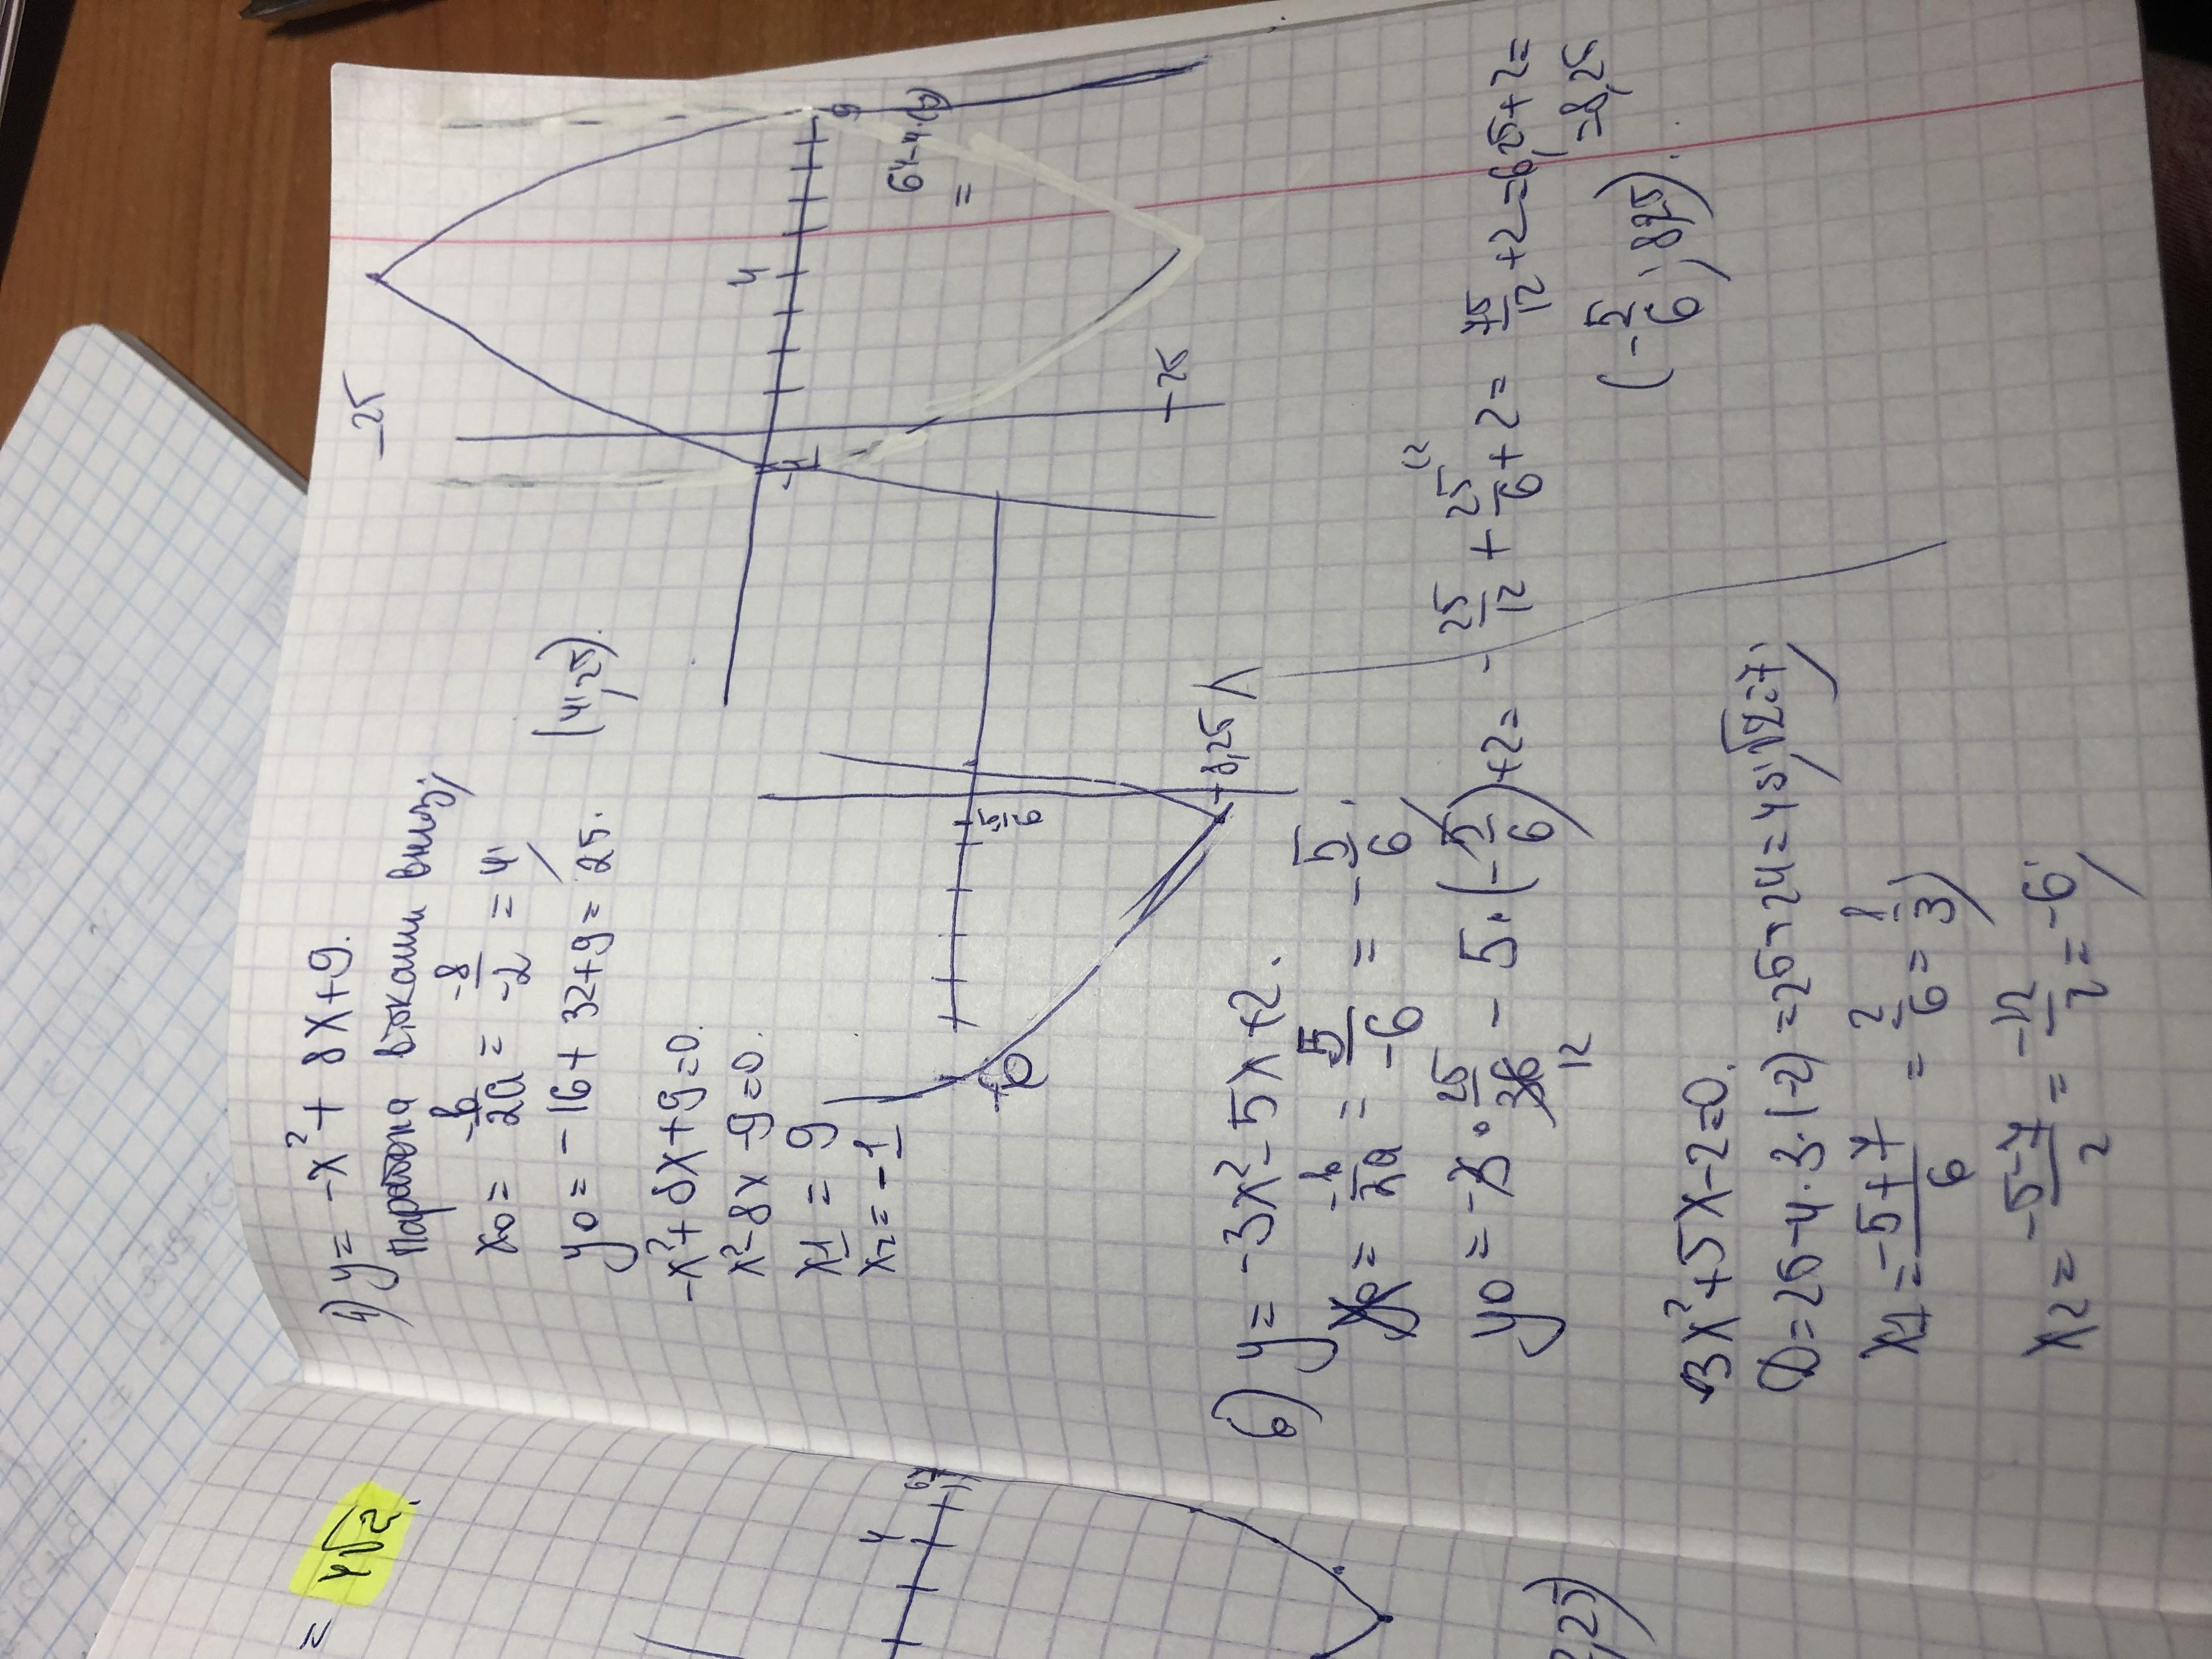 4) y = -x² + 8x + 9.
Парабола ветками вниз;
x₀ = -b/2a = -8/-2 = 4;
y₀ = -16 + 32 + 9 = 25.
(4; 25).
-x² + 8x + 9 = 0.
x² - 8x - 9 = 0.
x1 = 9
x2 = -1
-25
4
-1
9
-25
64-4·
=
5/6
8,25
6) y = -3x² - 5x + 2.
x₀ = -b/2a = 5/-6 = -5/6;
y₀ = -3 · 25/36 12 - 5 · (-5/6) + 2 = -25/12 + 25/6 + 2 = 75/12 + 2 = 6,25 + 2 =
= 8,25
(-5/6; 8,25).
3x² + 5x - 2 = 0.
D = 25 - 4 · 3 · (-2) = 25 + 24 = 49;
x1 = -5+7/6 = 2/6 = 1/3;
x2 = -5-7/2 = -12/2 = -6;
= 4√2.
4